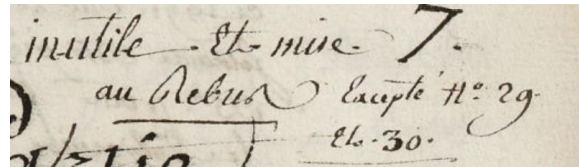 inutile - Et mise 7.
au Rebus Excepté N.º 29.
Et 30.